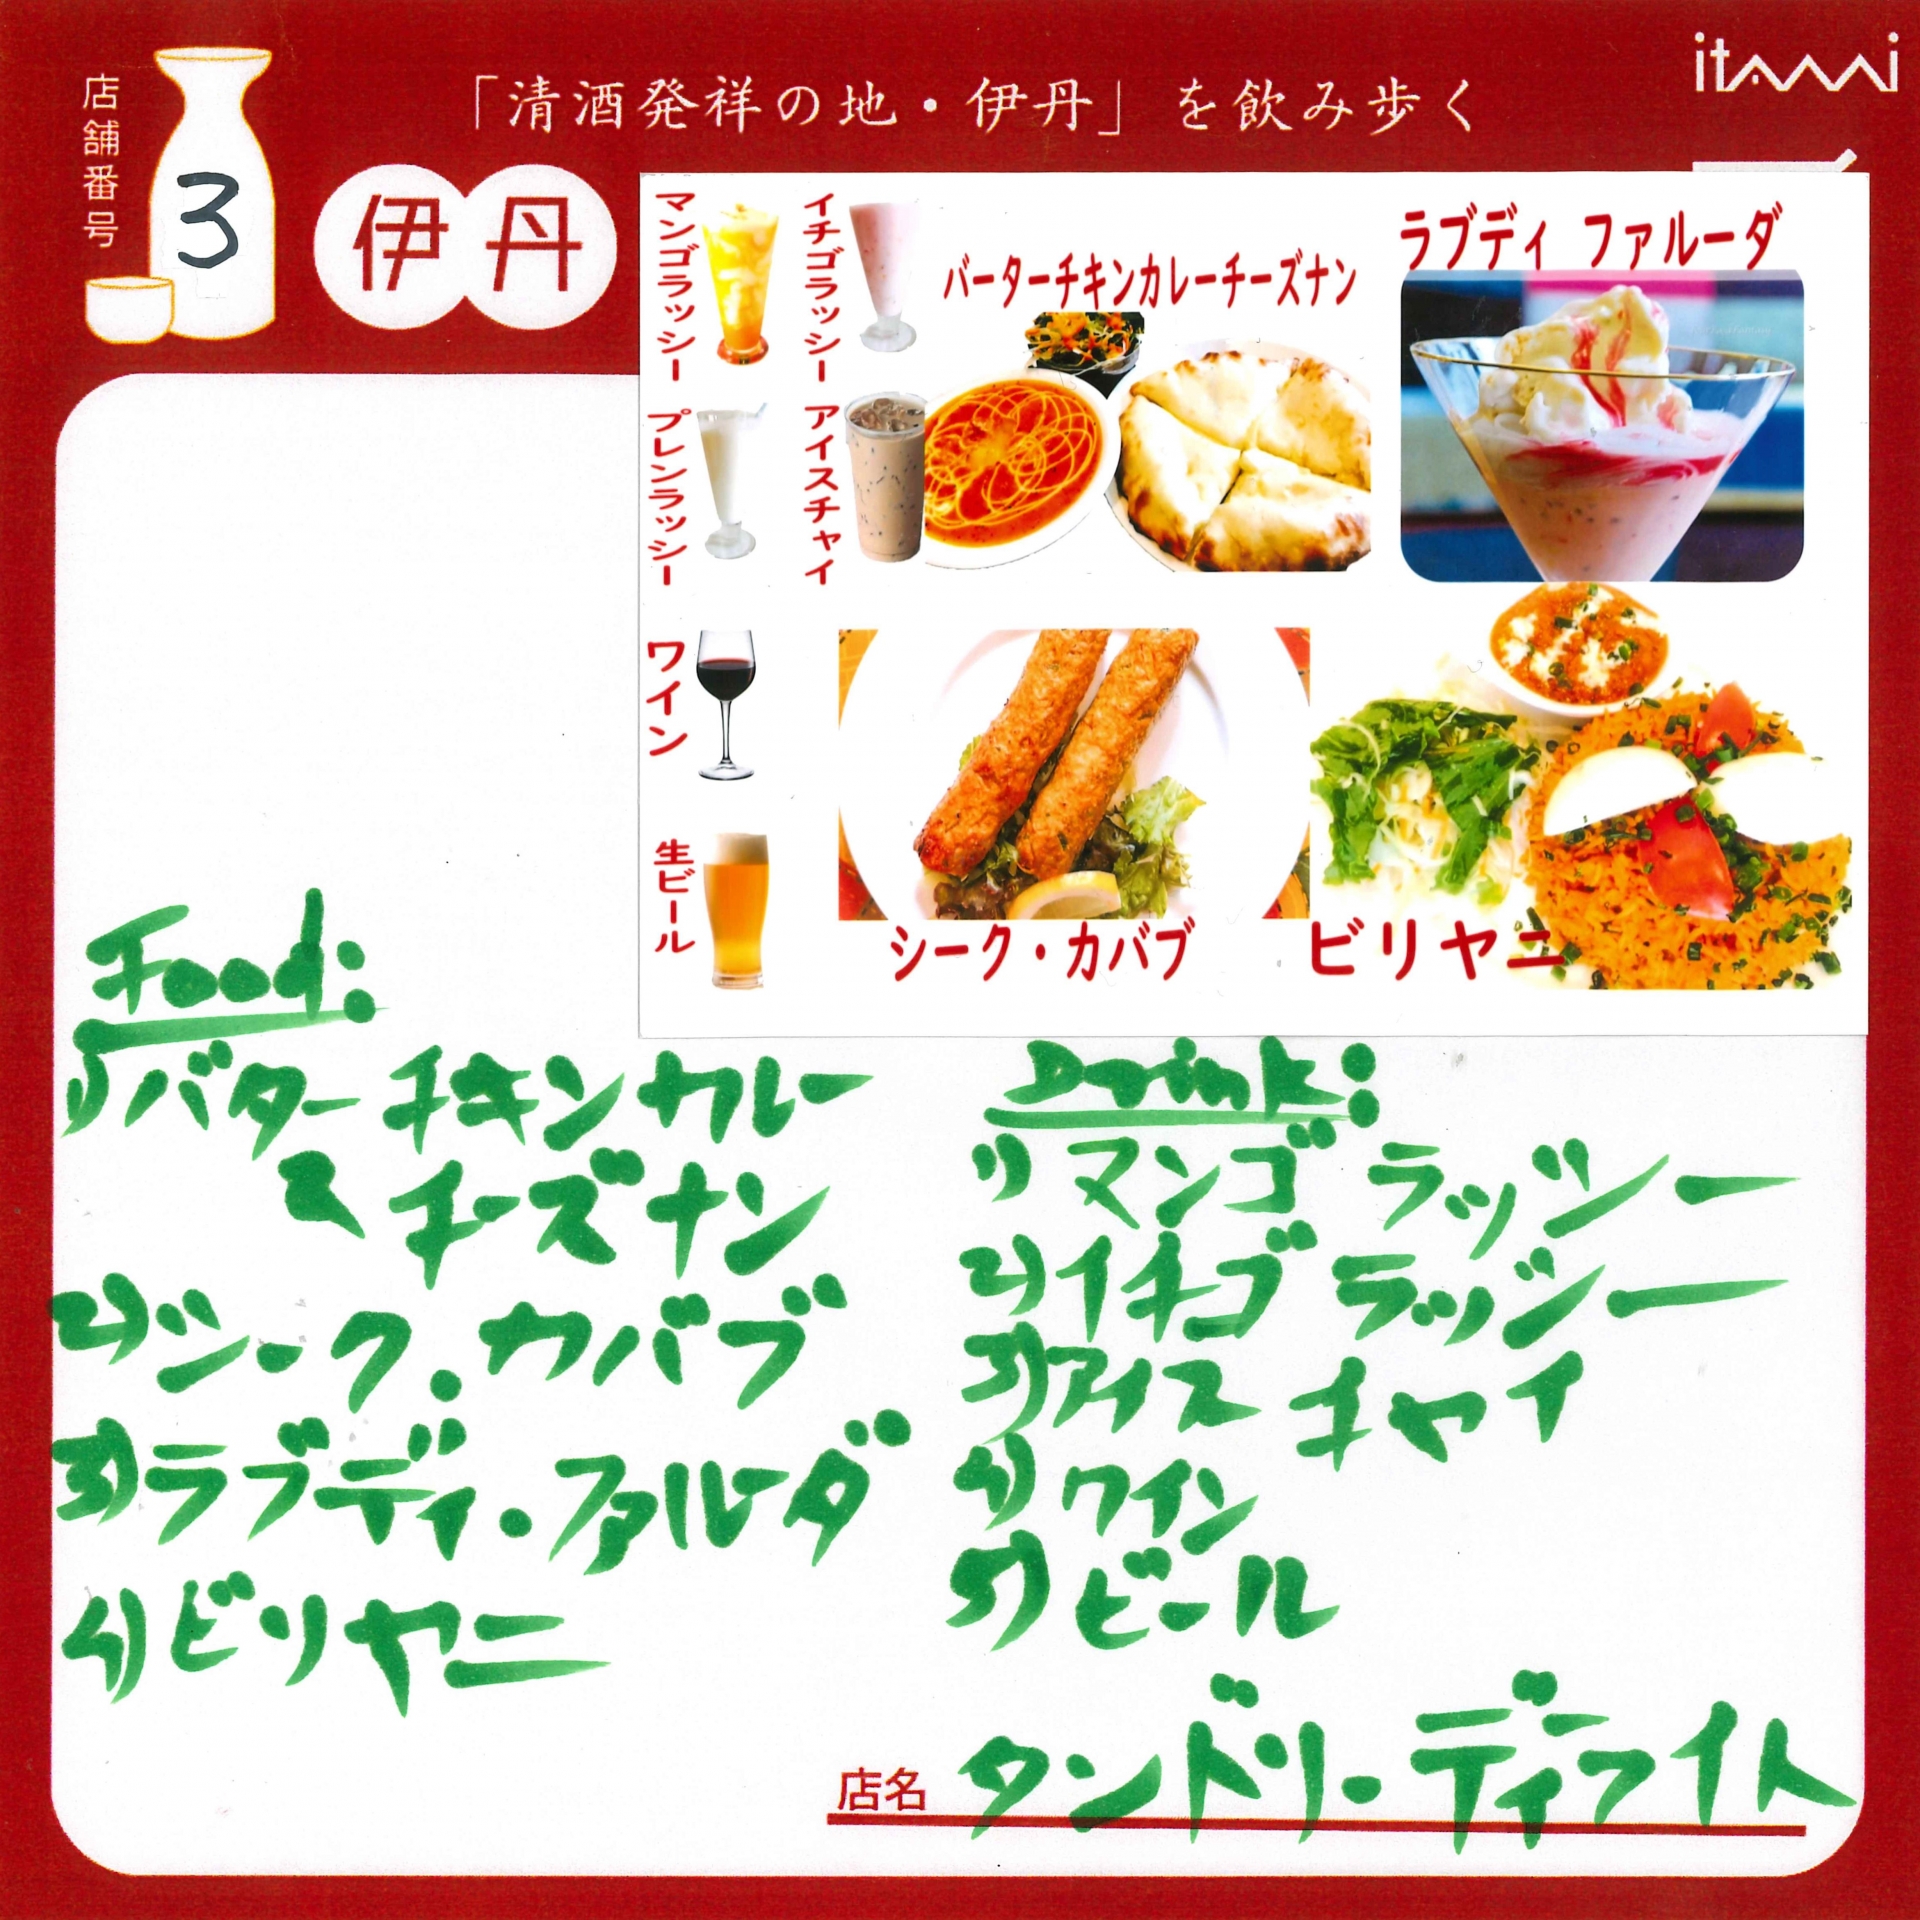 itami
「清酒発祥の地・伊丹」を飲み歩く
店舗番号
3
伊丹
マンゴラッシー
イチゴラッシー
バーターチキンカレーチーズナン
ラブディ ファルーダ
プレンラッシー
アイスチャイ
ワイン
生ビール
シーク・カバブ
ビリヤニ
Food:
1)バターチキンカレー
チーズナン
2)シーク.カバブ
3)ラブディ・ファルーダ
4)ビリヤニ
Drink:
1)マンゴ ラッシー
2)イチゴ ラッシー
3)アイス チャイ
4)ワイン
5)ビール
店名 タンドリーディライト